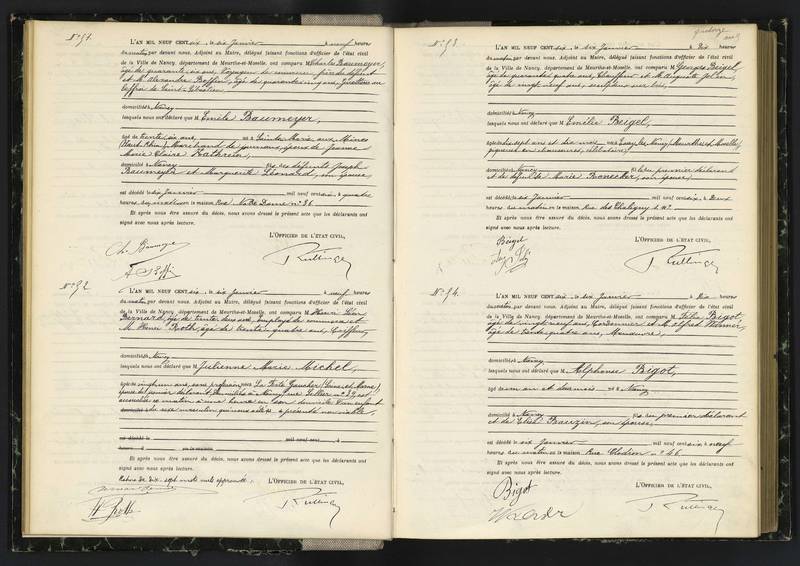 N° 91.
L'AN MIL NEUF CENT dix, le dix Janvier à neuf heures
du matin, par devant nous, Adjoint au Maire, délégué faisant fonctions d'officier de l'état civil
de la Ville de Nancy, département de Meurthe-et-Moselle, ont comparu M. Charles Baumeyer,
âgé de quarante six ans, Voyageur de commerce, frère du défunt
et M. Alexandre âgé de quarante cinq ans,
domiciliés à Nancy
lesquels nous ont déclaré que M. Emile Baumeyer,
âgé de trente six ans, né à Sainte Marie aux Mines
(Haut-Rhin), Marchand de journaux, époux de Jeanne
Marie Claire Kathrein,
domicilié à Nancy fils des défunts Joseph
Baumeyer et Marguerite Léonard, son épouse,
est décédé le dix Janvier mil neuf cent dix, à quatre
heures du matin en la maison Rue N° 36
Et après nous être assuré du décès, nous avons dressé le présent acte que les déclarants ont
signé avec nous après lecture.
L'OFFICIER DE L'ÉTAT CIVIL,
N° 92
L'AN MIL NEUF CENT dix, le dix Janvier à neuf heures
du matin, par devant nous, Adjoint au Maire, délégué faisant fonctions d'officier de l'état civil
de la Ville de Nancy, département de Meurthe-et-Moselle, ont comparu M. Henri Léon
Bernard, âgé de trente deux ans, employé de commerce et
M. Henri Roth, âgé de trente quatre ans, Coiffeur,
domiciliés à Nancy
lesquels nous ont déclaré que M. Julienne Marie Michel,
âgée de vingt un ans, sans profession, née à La Ferté Gaucher (Seine-et-Marne),
épouse du premier déclarant, domiciliée à Nancy, rue
accouchée ce matin à une heure en son domicile d'un enfant
du sexe masculin qu'il nous a présenté non viable.
est décédé le mil neuf cent à
heures en la maison
Et après nous être assuré du décès, nous avons dressé le présent acte que les déclarants ont
signé avec nous après lecture.
Rature de dix-sept mots nuls approuvée.
L'OFFICIER DE L'ÉTAT CIVIL,
H Roth
N° 93.
L'AN MIL NEUF CENT dix, le dix Janvier à dix heures
du matin, par devant nous, Adjoint au Maire, délégué faisant fonctions d'officier de l'état civil
de la Ville de Nancy, département de Meurthe-et-Moselle, ont comparu M. Georges Beigel,
âgé de quarante quatre ans, Chauffeur et M. Auguste
âgé de vingt neuf ans, sculpteur sur bois,
domiciliés à Nancy
lesquels nous ont déclaré que M. Emilie Beigel,
âgée de dix sept ans et dix mois, née à (Meurthe et Moselle),
piqueuse en chaussures, célibataire,
domiciliée à Nancy fille du premier déclarant
et de défunte Marie son épouse,
est décédée le dix Janvier mil neuf cent dix, à deux
heures du matin en la maison Rue de Chaligny
Et après nous être assuré du décès, nous avons dressé le présent acte que les déclarants ont
signé avec nous après lecture.
L'OFFICIER DE L'ÉTAT CIVIL,
Beigel
N° 94.
L'AN MIL NEUF CENT dix, le dix Janvier à dix heures
du matin, par devant nous, Adjoint au Maire, délégué faisant fonctions d'officier de l'état civil
de la Ville de Nancy, département de Meurthe-et-Moselle, ont comparu M. Félix Bigot,
âgé de vingt neuf ans, Cordonnier et M. Alfred
âgé de trente quatre ans, Manœuvre,
domiciliés à Nancy
lesquels nous ont déclaré que M. Alphonse Bigot,
âgé de un an et deux mois né à Nancy,
domicilié à Nancy fils du premier déclarant
et de son épouse,
est décédé le dix Janvier mil neuf cent dix à neuf
heures du matin en la maison Rue Clodion n° 46
Et après nous être assuré du décès, nous avons dressé le présent acte que les déclarants ont
signé avec nous après lecture.
L'OFFICIER DE L'ÉTAT CIVIL,
Bigot